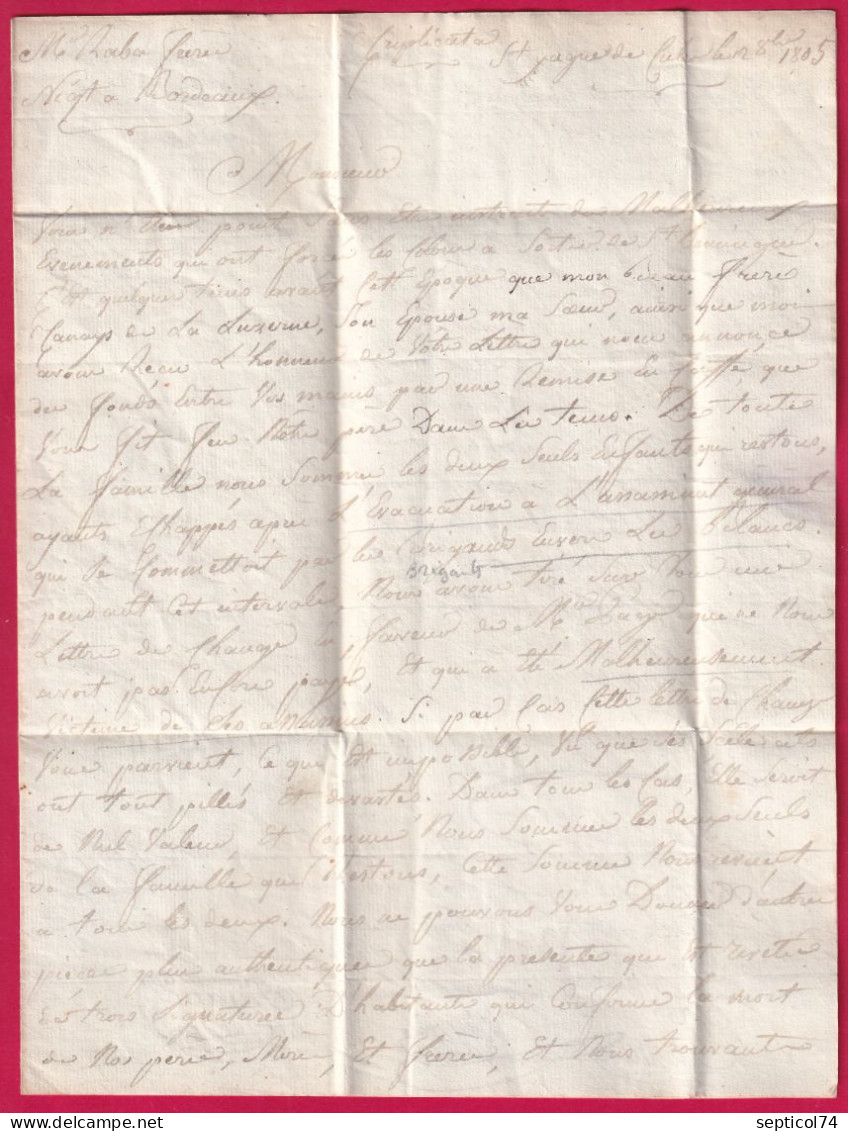 Mrs Raba frères triplicata St yague de Cuba le 8bre 1805
Négt a Bordeaux
Monsieur
Vous n'êtes point sans être instruits des Malheureux
Evenements qui ont forcé les Colons a Sortir de St Domingue.
C'est quelques tems avant cette Epoque que mon beau frère
de La Luzerne, Son Epouse ma Sœur, ainsi que moi
avons Recu L'honneur de Votre Lettre qui nous annonce
des fonds Entre Vos mains par une Remise En Caffé que
Vous fit feu Notre père Dans Les tems. De toute
La famille nous Sommes les deux Seuls Enfants qui restons,
ayants Echappés apres L'Evacuation à L'assassinat general
qui Se Commettoit par les Brigands Envers Les Blancs.
Brigants
pendant Cet intervale, Nous avons tiré Sur Vous une
Lettre de Change En faveur de Mr qui ne Nous
avoit pas Encore payé, Et qui a été Malheureusement
Victime de Ces animaux. Si par Cas Cette lettre de Change
Vous parvient, Ce qui Est impossible, Vu que Ces Scélerats
ont tout pillés Et devastés. Dans tous les Cas, Elle Seroit
de Nul Valeur, Et Comme Nous Sommes les deux Seuls
de la famille qui Restons, Cette Somme Nous revient
a tous les deux. Nous ne pouvons Vous Donner d'autre
pièce plus authentique que la presente qui Est revetue
de trois Signatures D'habitants qui Confirme la mort
de Nos père, Mère, Et frère, Et Nous trouvants